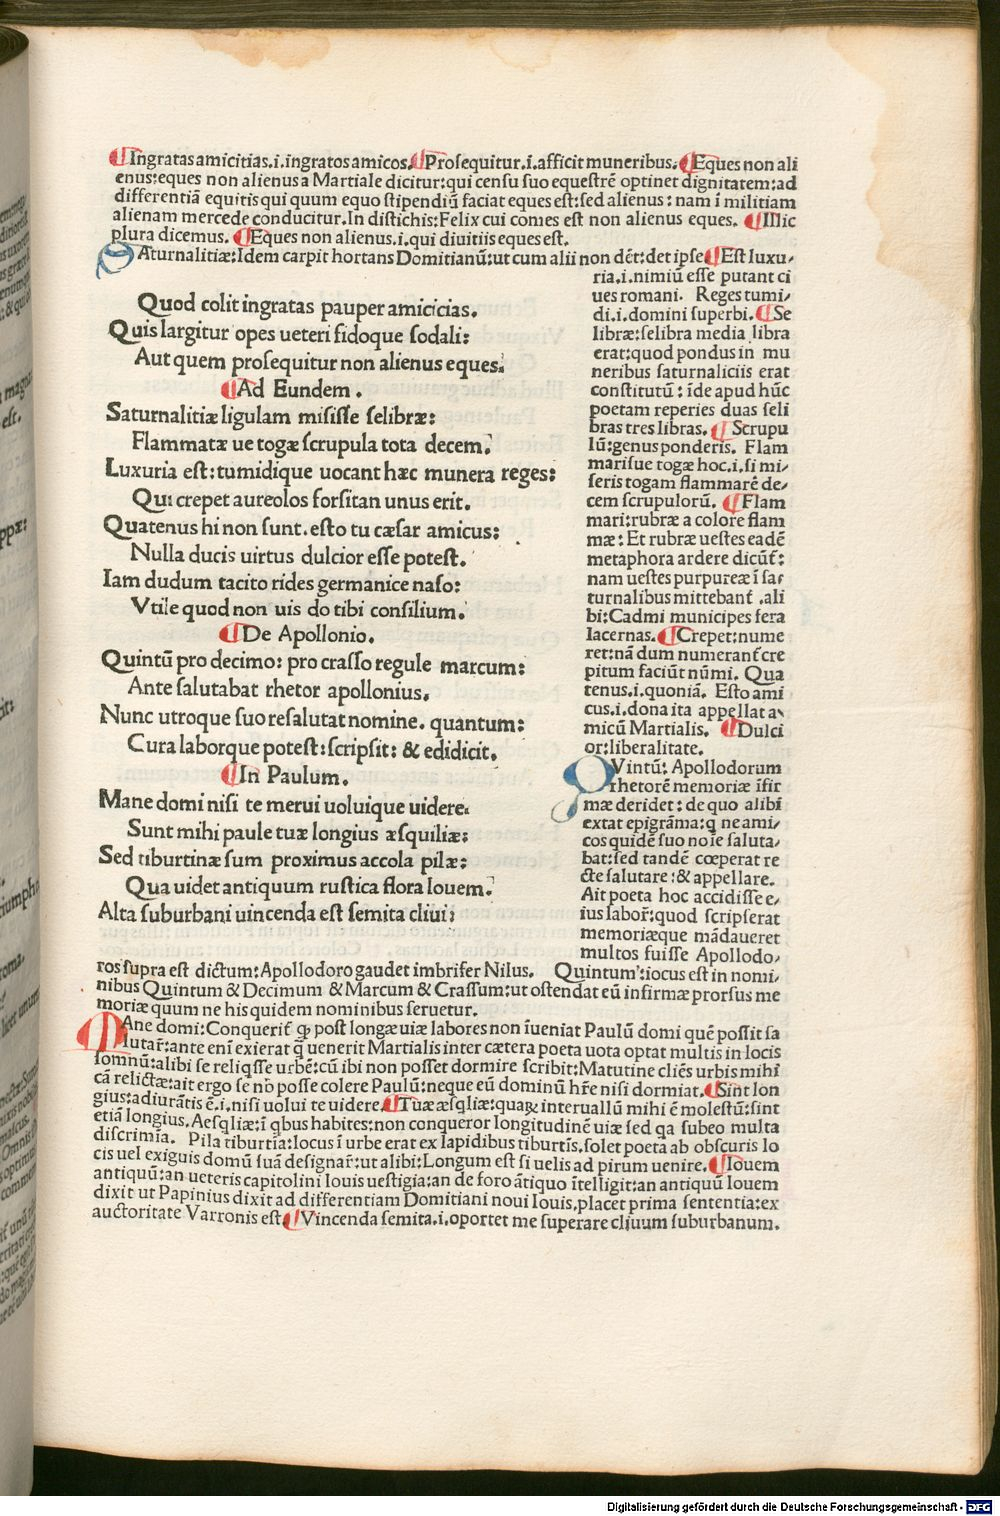 ¶Ingratas amicitias.i.ingratos amicos.¶Prosequitur.i.afficit muneribus.¶Eques non ali
enus:eques non alienus a Martiale dicitur:qui censu suo equestrē optinet dignitatem:ad
differentiā equitis qui quum equo stipendiū faciat eques est:sed alienus: nam ī militiam
alienam mercede conducitur.In distichis:Felix cui comes est non alienus eques. ¶Illic
plura dicemus. ¶Eques non alienus.i.qui diuitiis eques est.
SAturnalitiæ:Idem carpit hortans Domitianū:ut cum alii non dēt:det ipse¶Est luxu/
ria.i.nimiū esse putant ci
ues romani. Reges tumi/
di.i.domini superbi.¶Se
libræ:selibra media libra
erat:quod pondus in mu
neribus saturnaliciis erat
constitutū: īde apud hūc
poetam reperies duas seli
bras tres libras.¶Scrupu
lū:genus ponderis. Flam
marisue togæ hoc.i.si mi/
seris togam flammarē de/
cem scrupulorū. ¶Flam
mari:rubræ a colore flam
mæ: Et rubræ uestes eadē
metaphora ardere dicūt:
nam uestes purpureæ ī sa
turnalibus mittebant .ali
bi:Cadmi municipes fera
lacernas.¶Crepet:nume
ret:nā dum numerant cre
pitum faciūt nūmi. Qua
tenus.i.quoniā. Esto ami
cus.i.dona ita appellat a
micū Martialis. ¶Dulci
or:liberalitate.
Quod colit ingratas pauper amicicias.
Quis largitur opes ueteri fidoque sodali:
Aut quem prosequitur non alienus eques.
¶Ad Eundem.
Saturnalitiæ ligulam misisse selibræ:
Flammatæ ue togæ scrupula tota decem.
Luxuria est:tumidique uocant hæc munera reges:
Qui crepet aureolos forsitan unus erit.
Quatenus hi non sunt.esto tu cæsar amicus:
Nulla ducis uirtus dulcior esse potest.
Iam dudum tacito rides germanice naso:
Vtile quod non uis do tibi consilium.
¶De Apollonio.
Quintū pro decimo: pro crasso regule marcum:
Ante salutabat rhetor apollonius.
Nunc utroque suo resalutat nomine. quantum:
Cura laborque potest:scripsit: & edidicit.
¶In Paulum.
Mane domi nisi te merui uoluique uidere.
Sunt mihi paule tuæ longius æsquiliæ:
Sed tiburtinæ sum proximus accola pilæ:
Qua uidet antiquum rustica flora Iouem.
Alta suburbani uincenda est semita cliui:
QVintū: Apollodorum
rhetorē memoriæ īfir
mæ deridet: de quo alibi
extat epigrāma:q ne ami/
cos quidē suo noīe saluta/
bat:sed tandē cœperat re
cte salutare:& appellare.
Ait poeta hoc accidisse e/
ius labor:quod scripserat
memoriæque mādaueret
multos fuisse Apollodo/
ros supra est dictum:Apollodoro gaudet imbrifer Nilus. Quintum:iocus est in nomi/
nibus Quintum & Decimum & Marcum & Crassum:ut ostendat eū infirmæ prorsus me
moriæ quum ne his quidem nominibus seruetur.
MAne domi:Conquerit ꝙ post longæ uiæ labores non īueniat Paulū domi quē possit sa
lutar:ante enī exierat q̄ uenerit Martialis inter cætera poeta uota optat multis in locis
somnū:alibi se reliqsse urbē:cū ibi non posset dormire scribit:Matutine cliēs urbis mihi
cā relictæ:ait ergo se nō posse colere Paulū:neque eū dominū hr̄e nisi dormiat.¶Sint lon
gius:adiurātis ē.i.nisi uolui te uidere.¶Tuæ æsqliæ:quaꝝ interuallū mihi ē molestū:sint
etiā longius. Aesqliæ:ī qbus habites:non conqueror longitudinē uiæ sed qa subeo multa
discrimīa. Pila tiburtia:locus ī urbe erat ex lapidibus tiburtis.solet poeta ab obscuris lo
cis uel exiguis domū suā designar:ut alibi:Longum est si uelis ad pirum uenire.¶Iouem
antiquū:an ueteris capitolini Iouis uestigia:an de foro ātiquo ītelligit:an antiquū Iouem
dixit ut Papinius dixit ad differentiam Domitiani noui Iouis.placet prima sententia:ex
auctoritate Varronis est¶Vincenda semita.i.oportet me superare cliuum suburbanum.
Digitalisierung gefördert durch die Deutsche Forschungsgemeinschaft - DFG